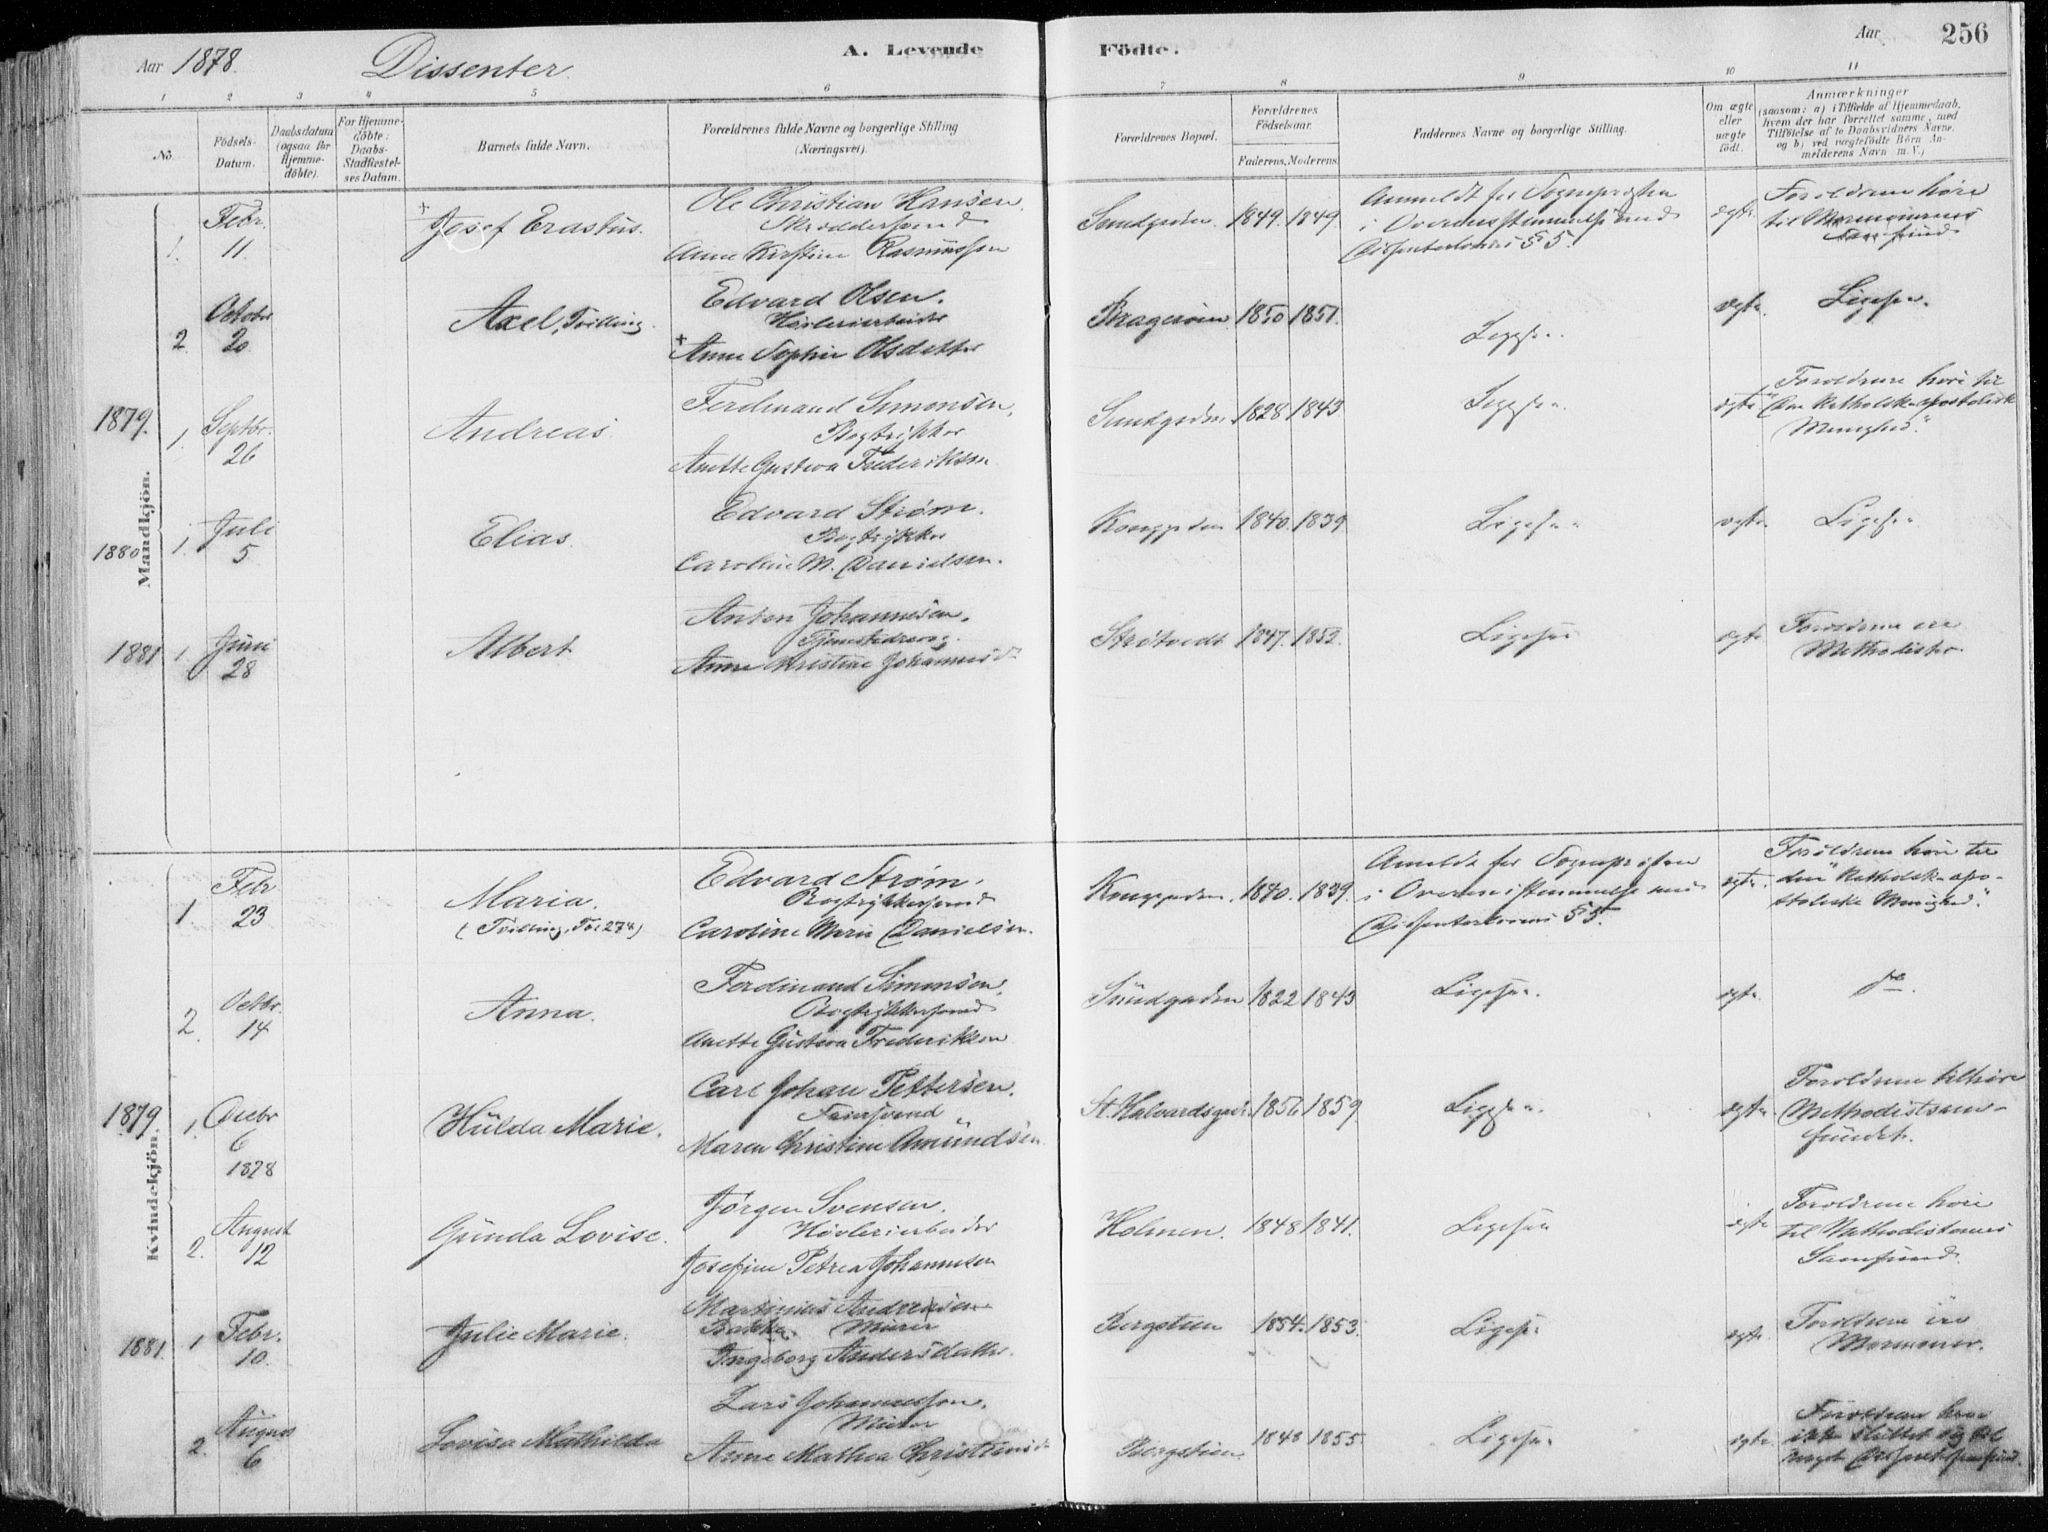 Aar 1878. Dissenter. A. Levende Födte. Aar 256
1 2 3 4 5 6 7 8 9 10 11
No.
Födsels-
Datum.
Daabsdatum
(ogsaa for
Hjemme-
döbte).
For Hjemme-
döbte:
Daabs-
Stadfæstel-
ses Datum.
Barnets fulde Navn.
Forældrenes fulde Navne og borgerlige Stilling
(Næringsvei).
Forældrenes Bopæl.
Forældrenes
Födselsaar.
Faderens. Moderens.
Faddernes Navne og borgerlige Stilling.
Om ægte
eller
uægte
födt.
Anmærkninger
(saasom: a) i Tilfælde af Hjemmedaab,
hvem der har forrettet samme, med
Tilföielse af to Daabsvidners Navne.
og b) ved uægtefödte Börn An-
melderens Navn m. V.)
Mandkjön.
1. Febr. 11. + Josef Erastus.
Ole Christian Hansen.
Skræddersvend
Anne Kirstine Rasmussen
1849. 1849.
Anmeldt for Sognepræsten
i Overensstemmelse med
Dissenterlovens § 5.
ægte
Forældrene höre
til Mormonernes
Samfund
2. October 20. Axel, Tvilling.
Edvard Olsen.
Høvleriarbeider
+ Anne Sophie Olsdatter
Bragerøen 1850 1851.
Ligesaa
ægte. Ligesaa.
1879. 1. Septbr. 26 Andreas.
Ferdinand Simonsen,
Bogtrykker
Anette Gustava Frederiksen
1828 1843
Ligesaa
ægte
Forældrene høre til
"den katholsk-apostoliske
Menighed."
1880 1. Juli 5 Elias.
Edvard Strøm.
Bogtrykker
Caroline M. Danielsen.
1840. 1839
Ligesaa
ægte Ligesaa
1881 1. Juni 28 Albert
Anton Johannesen.
Tjenestedreng.
Anne Kristine Johannesd.
Strøtvedt 1847. 1852.
Ligesaa
ægte
Forældrene ere
Methodister
Kvindekjön.
1 Febr 23 Maria.
(Tvilling, Fol 274)
Edvard Strøm.
Bogtrykkersvend
Caroline Marie Danielsen.
1840. 1839.
Anmeldt for Sognepræsten
i Overensstemmelse med
Dissenterlovens § 5.
ægte.
Forældrene høre til
den "katholsk-apo-
stoliske Menighed".
2. Octbr. 14 Anna.
Ferdinand Simonsen,
Bogtrykkersvend
Anette Gustava Frederiksen
1822 1843
Ligesaa.
ægte do.
1879. 1. Decbr 6 1878 Hulda Marie.
Carl Johan Pettersen.
Farvesvend
Maren Christine Amundsen
St. Halvardsgade. 1856 1859.
Ligesaa.
ægte
Forældrene tilhøre
Methodistsam-
fundet.
2. August 12 Gunda Lovise.
Jørgen Svensen.
Høvleriarbeider
Josefine Petrea Johannesen
Holmen. 1848 1841.
Ligesaa
ægte
Forældrene høre
til Methodisternes
Samfund.
1881. 1 Febr. 10. Julie Marie.
Martinius Andreasen
Bakke. Murer
Ingeborg Andersdatter.
Bergstien 1854. 1853.
Ligesaa
ægte.
Forældrene ere
Mormoner.
2. August 6 Lovisa Mathilda
Lars Johannessen.
Murer
Anne Mathea Christiansd.
Bergstien 1848 1855.
Ligesaa
ægte.
Forældrene have
ikke sluttet sig til
noget Dissentersamfund.